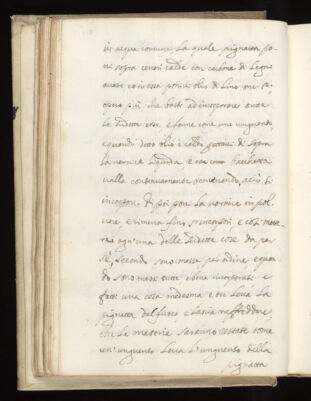 in acqua comune la quale pignatta po-
ni sopra ceneri calde con carbone di legne
avere et in essa poni olio di Lino one se-
più che basti ad incorporare tutte
le sudette cose e farne come un unguento,
quando detto olio è caldo gettavi di sopra
la vernice liquida e con una bachetta
valla continuamente remenando, acciò s'
incorpori. di poi poni la vernice in pol-
vere, e rimena fino s'incorpori, e così mette-
rai ogn'una delle sudette cose da per
sé, secondo sono messe per ordine e quan-
do sono messe tutte e bene incorporate e
fatte una cosa medesma e tu leva la
pignatta dal fuoco e lascia raffreddare,
che le materie saranno restate come
un'unguento leva l'unguento della
pignatta